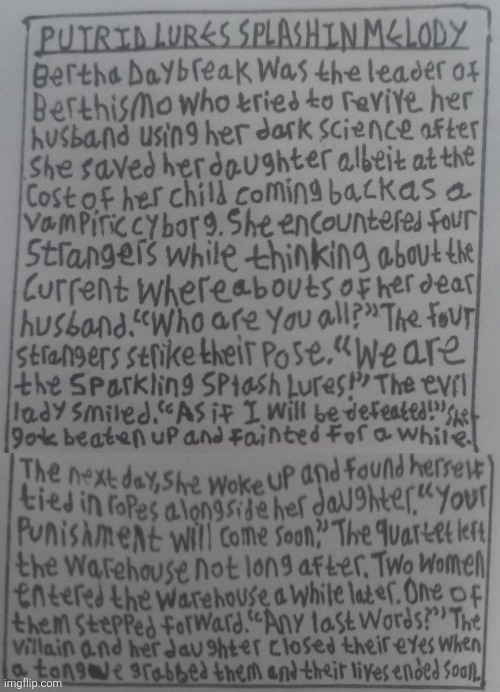 PUTRID LURES SPLASH IN MELODY
Bertha Daybreak was the leader of
Berthismo who tried to revive her
husband using her dark science after
she saved her daughter albeit at the
cost of her child coming back as a
vampiric cyborg. She encountered four
strangers while thinking about the
current whereabouts of her dear
husband. "Who are you all?" The four
strangers strike their pose. "We are
the Sparkling Splash Lures!" The evil
lady smiled. "As if I will be defeated!" She
got beaten up and fainted for a while.
The next day, she woke up and found herself
tied in ropes alongside her daughter. "Your
Punishment will come soon." The quartet left
the warehouse not long after. Two women
entered the warehouse a while later. One of
them stepped forward. "Any last words?" The
villain and her daughter closed their eyes when
a tongue grabbed them and their lives ended soon.
imgflip.com